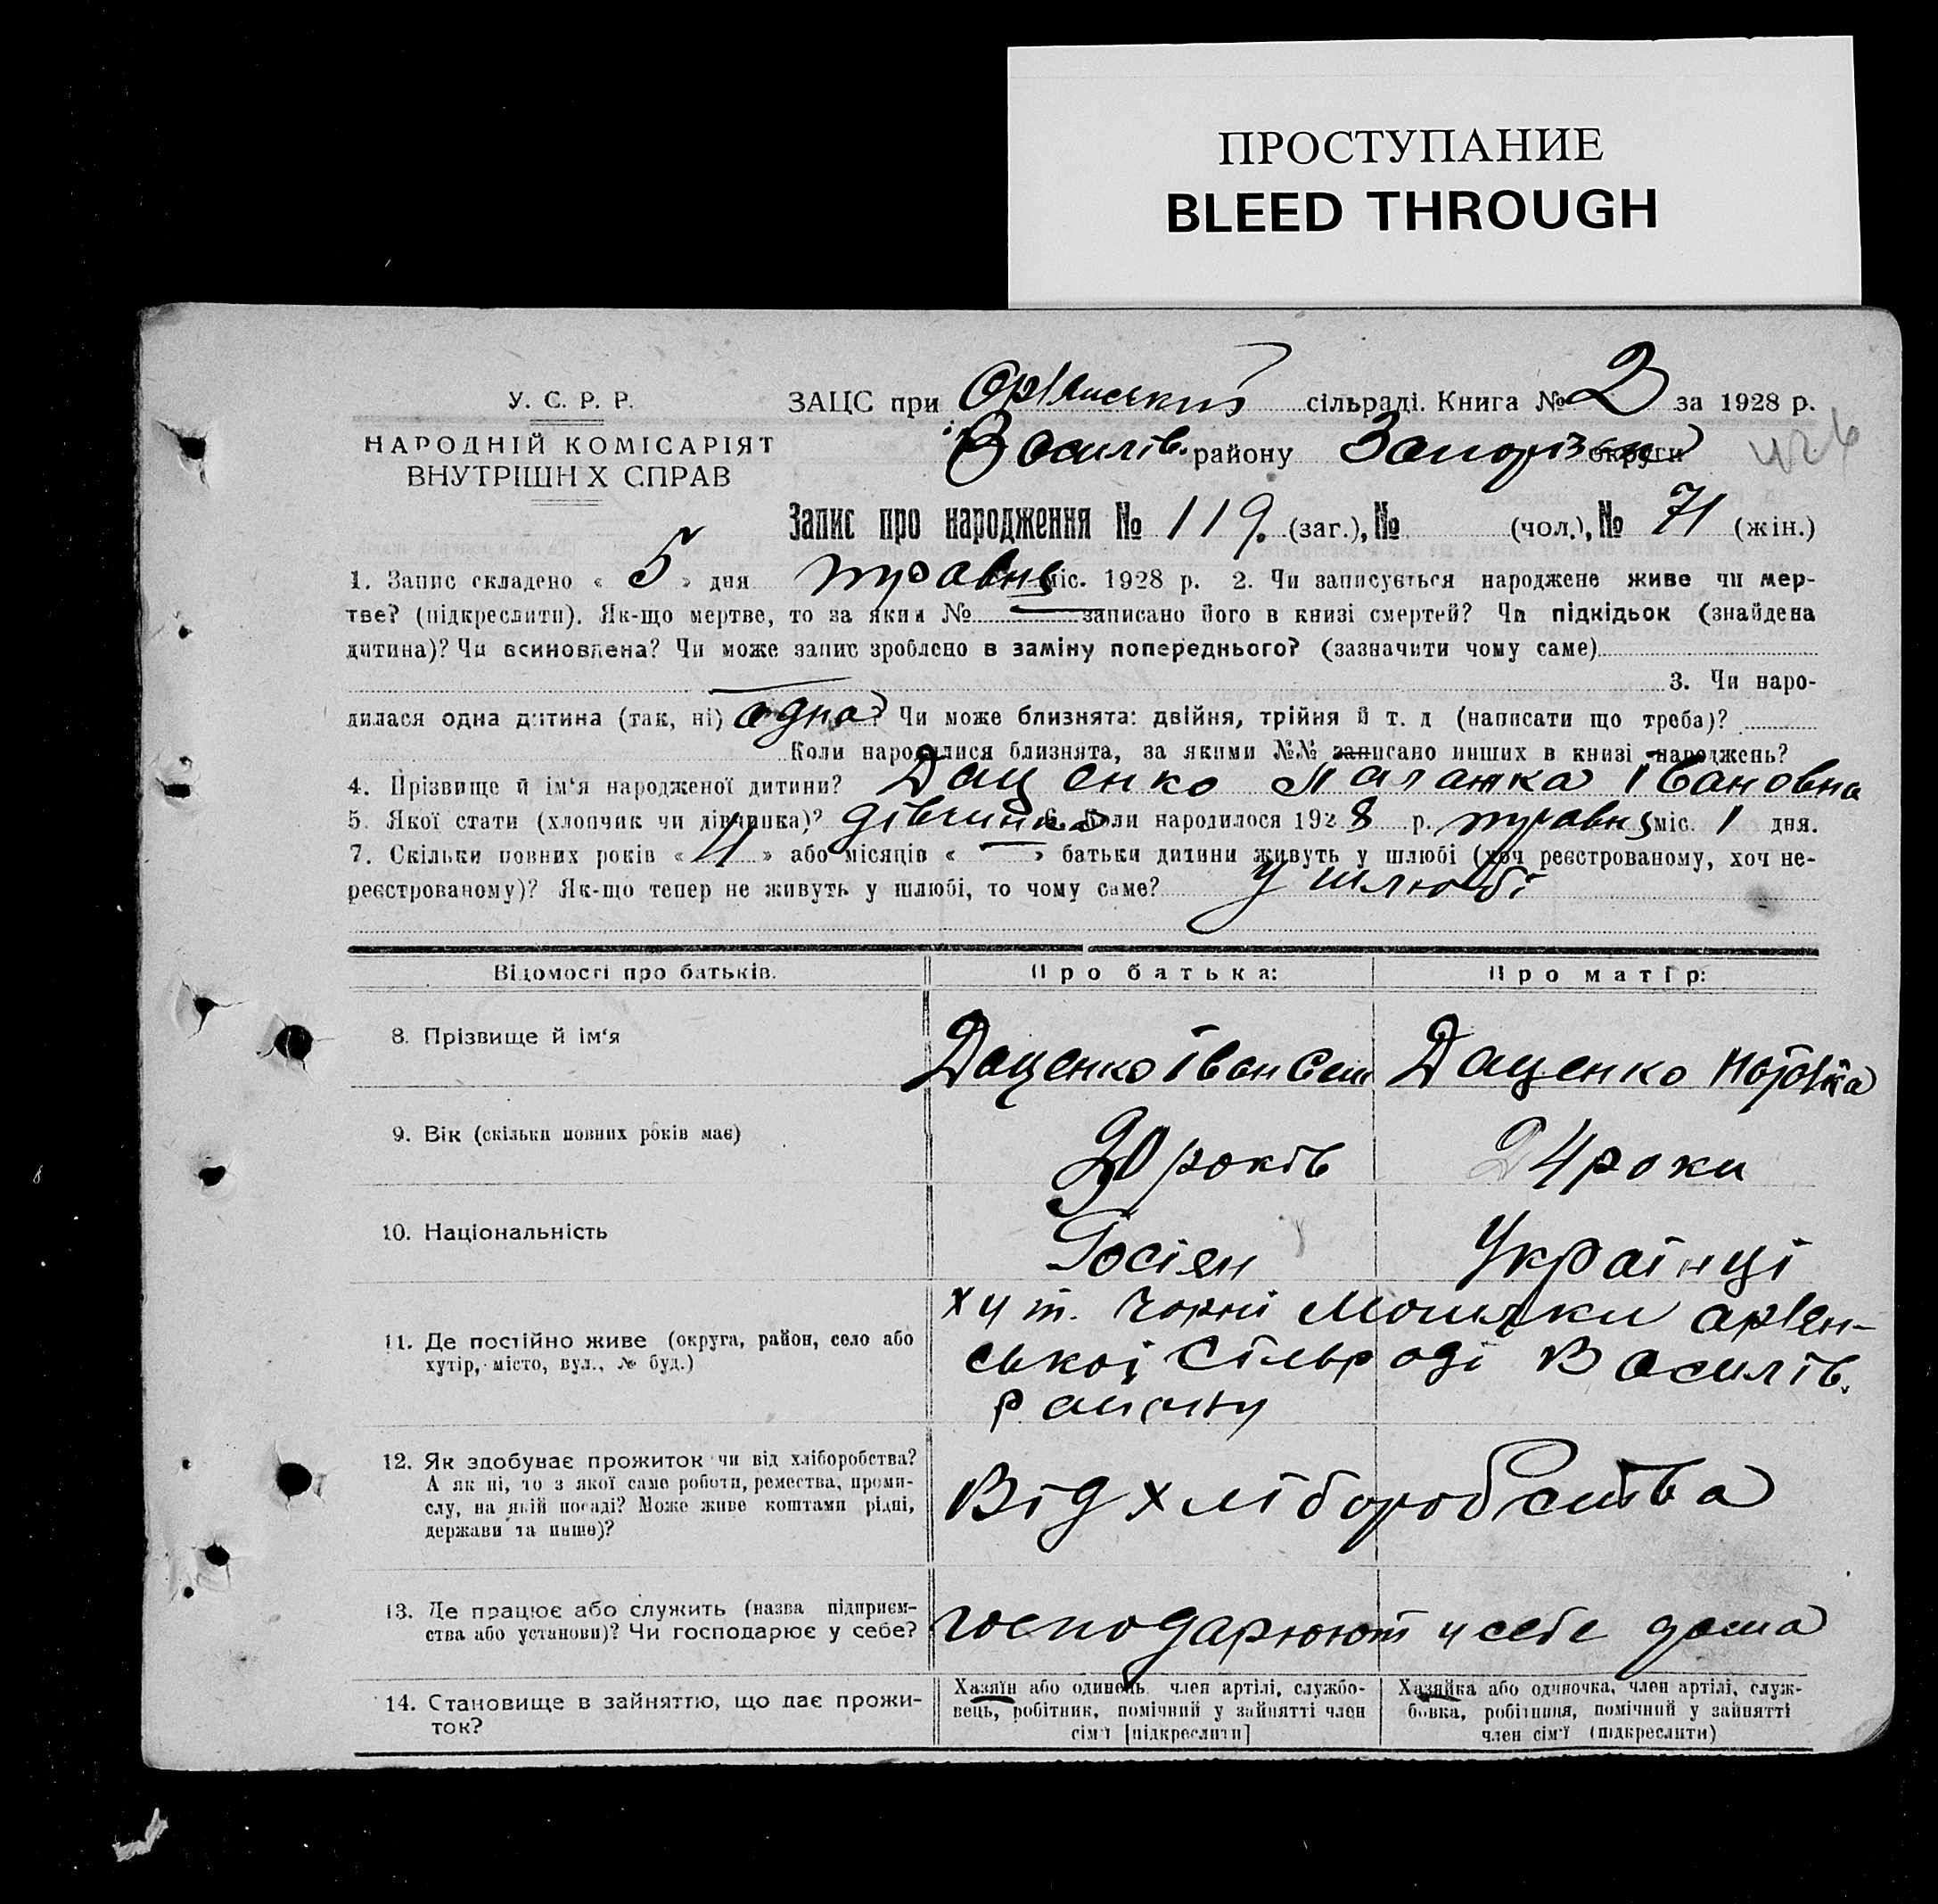 ПРОСТУПАНИЕ
BLEED THROUGH
У. С. Р. Р.
НАРОДНІЙ КОМІСАРІЯТ
ВНУТРІШН Х СПРАВ
ЗАЦС при сільраді. Книга № 2 за 1928 р.
Василів. району Запорізьк округи
Запис про народження № 119. (заг.), № (чол.), № 71 (жін.)
1. Запис складено « 5 » дня травня міс. 1928 р. 2. Чи записується народжене живе чи мер-
тве? (підкреслити). Як-що мертве, то за яким № записано його в книзі смертей? Чи підкідьок (знайдена
дитина)? Чи всиновлена? Чи може запис зроблено в заміну попереднього? (зазначити чому саме)
3. Чи наро-
дилася одна дитина (так, ні) одна? Чи може близнята: двійня, трійня й т. д (написати що треба)?
Коли народилися близнята, за якими №№ записано инших в книзі народжень?
4. Прізвище й ім'я народженої дитини? Даценко Палажка Івановна
5. Якої стати (хлопчик чи дівчинка)? дівчинка 6. Коли народилося 1928 р. травня міс. 1 дня.
7. Скільки повних років « 4 » або місяців « — » батьки дитини живуть у шлюбі (хоч реєстрованому, хоч не-
реєстрованому)? Як-що тепер не живуть у шлюбі, то чому саме? У шлюбі
Відомості про батьків. Про батька: Про матір:
8. Прізвище й ім'я Даценко Іван Сем Даценко
9. Вік (скільки повних років має) 30 років 24 роки
10. Національність Росіян Українці
11. Де постійно живе (округа, район, село або
хутір, місто, вул., № буд.)
хут. Чорні
ської сільраді Василів.
району
12. Як здобуває прожиток чи від хліборобства?
А як ні, то з якої саме роботи, ремества, проми-
слу, на якій посаді? Може живе коштами рідні,
держави та инше)?
Від хліборобства
13. Де працює або служить (назва підприєм-
ства або установи)? Чи господарює у себе?
господарюют у себе дома
14. Становище в зайняттю, що дає прожи-
ток?
Хазяїн або одинець, член артілі, службо-
вець, робітник, помічний у зайнятті член
сім'ї [підкреслити]
Хазяйка або одиночка, член артілі, служ-
бовка, робітниця, помічний у зайнятті
член сім'ї (підкреслити)